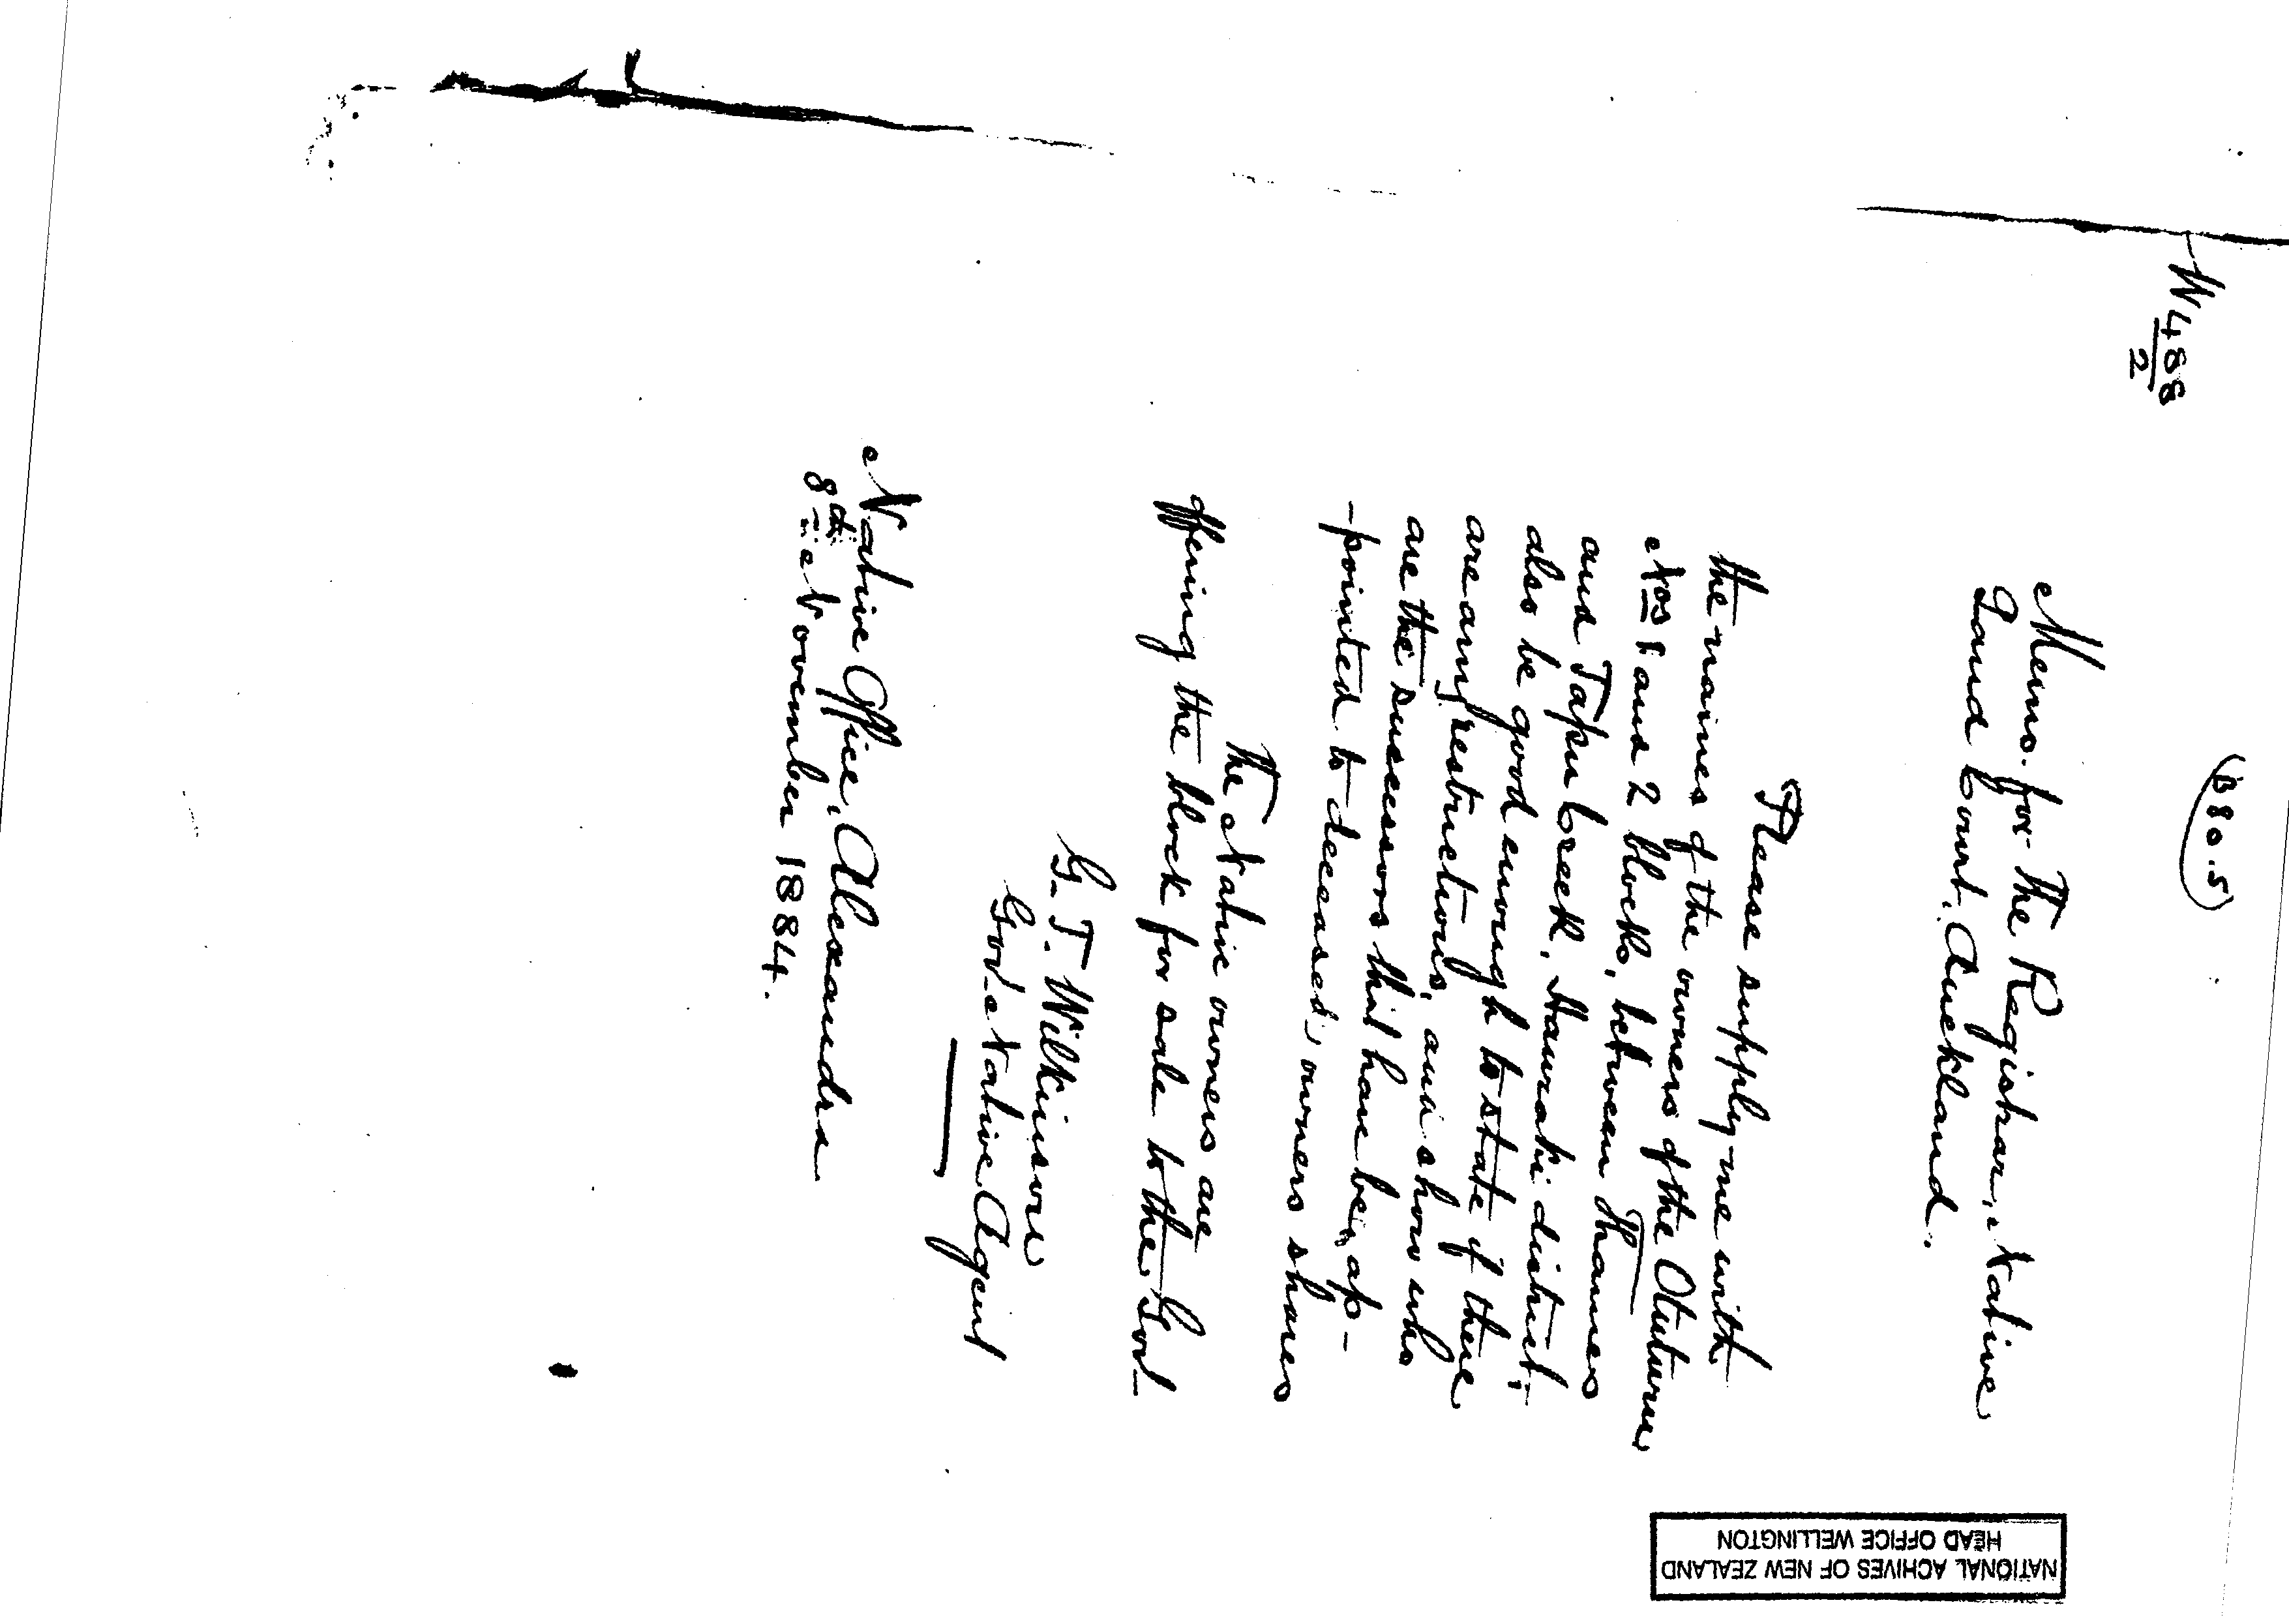 W488
2
(B80.5)
Memo. for The Registrar, Native
Land Court, Auckland.
Please supply me with
the names of the owners of the Otuturu
Nos 1 and 2 blocks, between Thames
and Tapu Creek, Hauraki district;
also be good enough to state if there
are any restrictions, and show who
are the successors that have been ap-
-pointed to deceased, owners shares
The Native owners are
offering the block for sale to the Govt
G. T. Wilkinson
Govt Native Agent
Native Office, Alexandra
8th November 1884.
NATIONAL ACHIVES OF NEW ZEALAND
HEAD OFFICE WELLINGTON